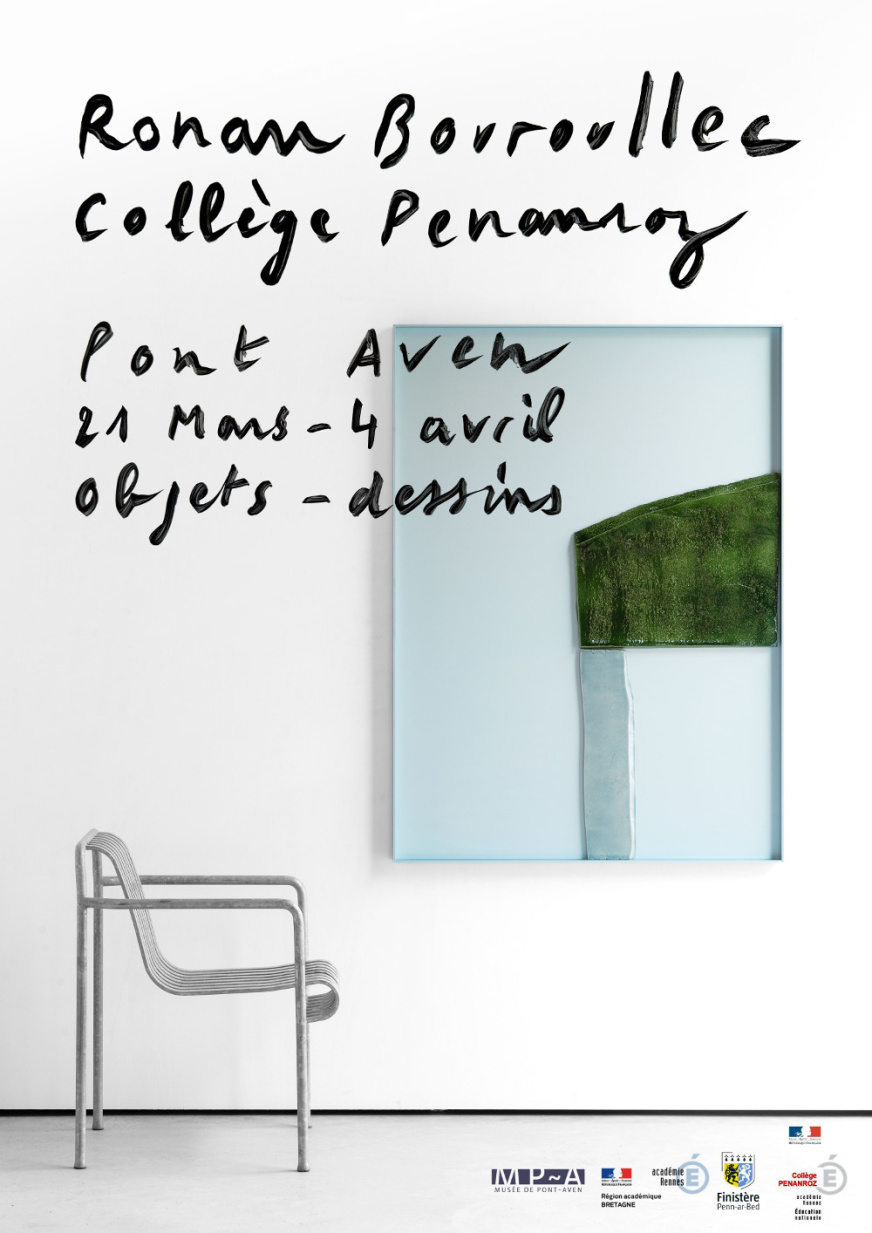 Ronan Bouroullec
Collège Penanroz
Pont Aven
21 Mars - 4 avril
Objets - dessins
MP~A
MUSÉE DE PONT-AVEN
Région académique
BRETAGNE
académie
Rennes
É
Finistère
Penn-ar-Bed
Collège
PENANROZ
É
académie
Rennes
Éducation
nationale